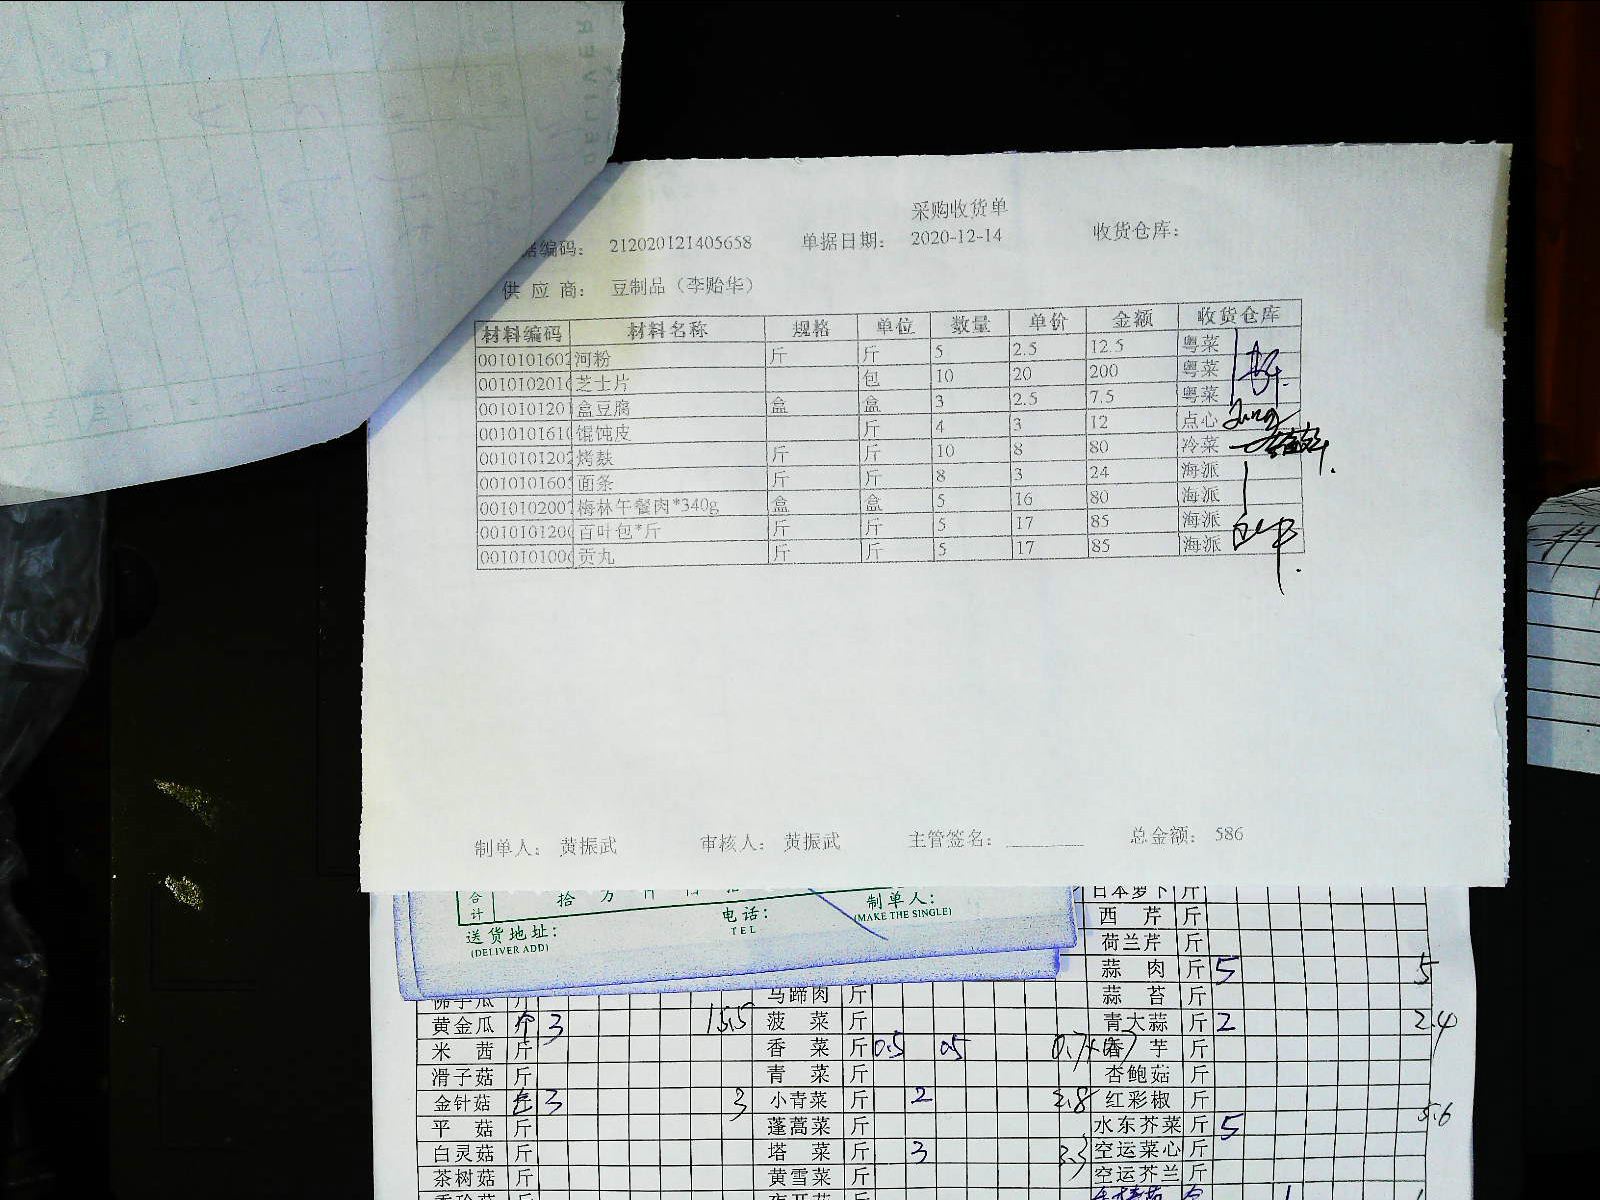 采购收货单
据编码： 212020121405658 单据日期： 2020-12-14 收货仓库：
供应商： 豆制品（李贻华）
材料编码 材料名称 规格 单位 数量 单价 金额 收货仓库
0010101602 河粉 斤 斤 5 2.5 12.5 粤菜
001010201 芝士片 包 10 20 200 粤菜
001010120 盒豆腐 盒 盒 3 2.5 7.5 粤菜
001010161 馄饨皮 斤 4 3 12 点心
001010120 烤麸 斤 斤 10 8 80 冷菜
001010160 面条 斤 斤 8 3 24 海派
001010200 梅林午餐肉*340g 盒 盒 5 16 80 海派
001010120 百叶包*斤 斤 斤 5 17 85 海派
001010100 贡丸 斤 斤 5 17 85 海派
制单人： 黄振武 审核人： 黄振武 主管签名： 总金额： 586
合计 拾 万
送货地址： 电话： 制单人：
(DELIVER ADD) TEL (MAKE THE SINGLE)
日本萝卜 斤
西芹 斤
荷兰芹 斤
蒜肉 斤 5 5
马蹄肉 斤 蒜苔 斤
黄金瓜 个 3 15.5 菠菜 斤 青大蒜 斤 2 2.4
米茜 斤 香菜 斤 0.5 0.5 香芋 斤
滑子菇 斤 青菜 斤 杏鲍菇 斤
金针菇 3 3 小青菜 斤 2 2.8 红彩椒 斤
平菇 斤 蓬蒿菜 斤 水东芥菜 斤 5 5.6
白灵菇 斤 塔菜 斤 3 3.3 空运菜心 斤
茶树菇 斤 黄雪菜 斤 空运芥兰 斤